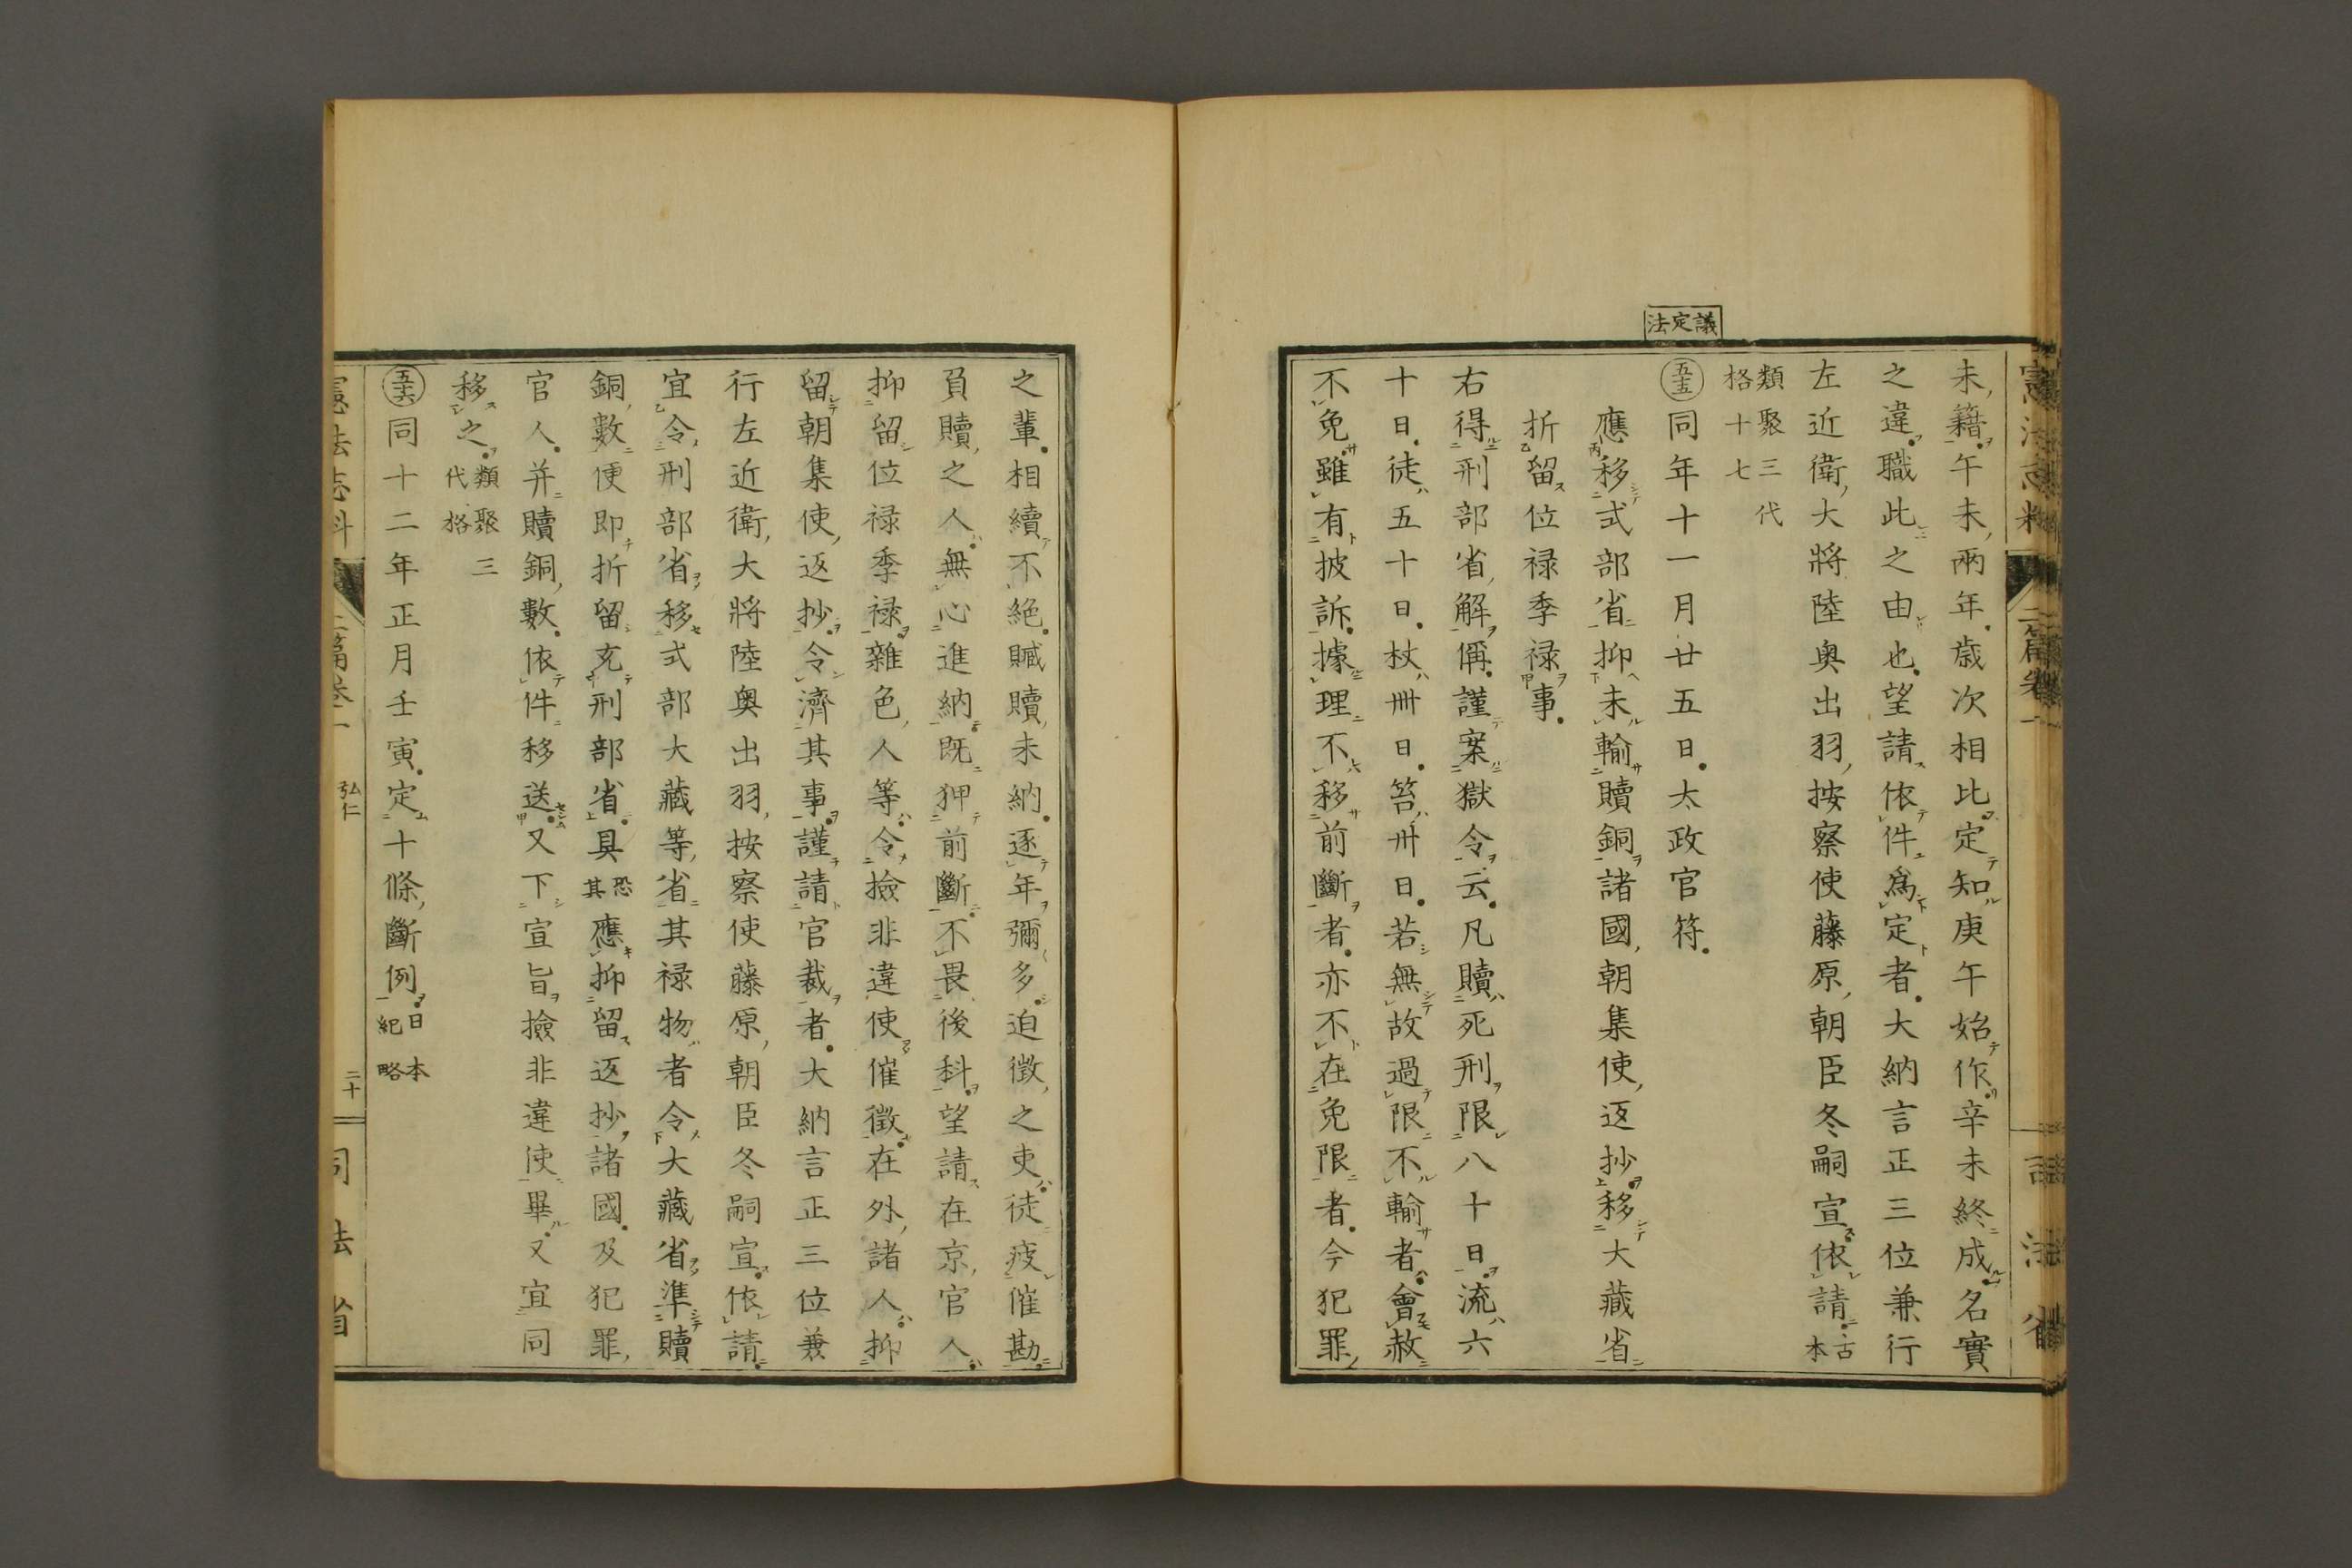 議定法
未籍午未兩年歳次相比定知庚午始作辛未終成名實
之違職此之由也望請依件爲定者大納言正三位兼行
左近衛大將陸奥出羽按察使藤原朝臣冬嗣宣依請古本
類聚三代
格十七
五十五同年十一月廿五日太政官符
應移式部省抑未輸贖銅諸國朝集使返抄移大藏省
折留位禄季禄事
右得刑部省解偁謹案獄令云凡贖死刑限八十日流六
十日徒五十日杖卌日笞卅日若無故過限不輸者會赦
不免雖有披訴據理不移前斷者亦不在免限者今犯罪
之輩相續不絶贓贖未納逐年彌多迫徴之吏徒疲催勘
負贖之人無心進納既狎前斷不畏後科望請在京官人
抑留位禄季禄雜色人等令撿非違使催徴在外諸人抑
留朝集使返抄令濟其事謹請官裁者大納言正三位兼
行左近衛大將陸奥出羽按察使藤原朝臣冬嗣宣依請
宜令刑部省移式部大藏等省其禄物者令大藏省準贖
銅數便即折留充刑部省具恐其應抑留返抄諸國及犯罪
官人并贖銅數依件移送又下宣旨撿非違使畢又宜同
移之類聚三代格
五十六同十二年正月壬寅定十條斷例日本紀略
憲法志料 二篇卷一 弘仁 二十 司法省